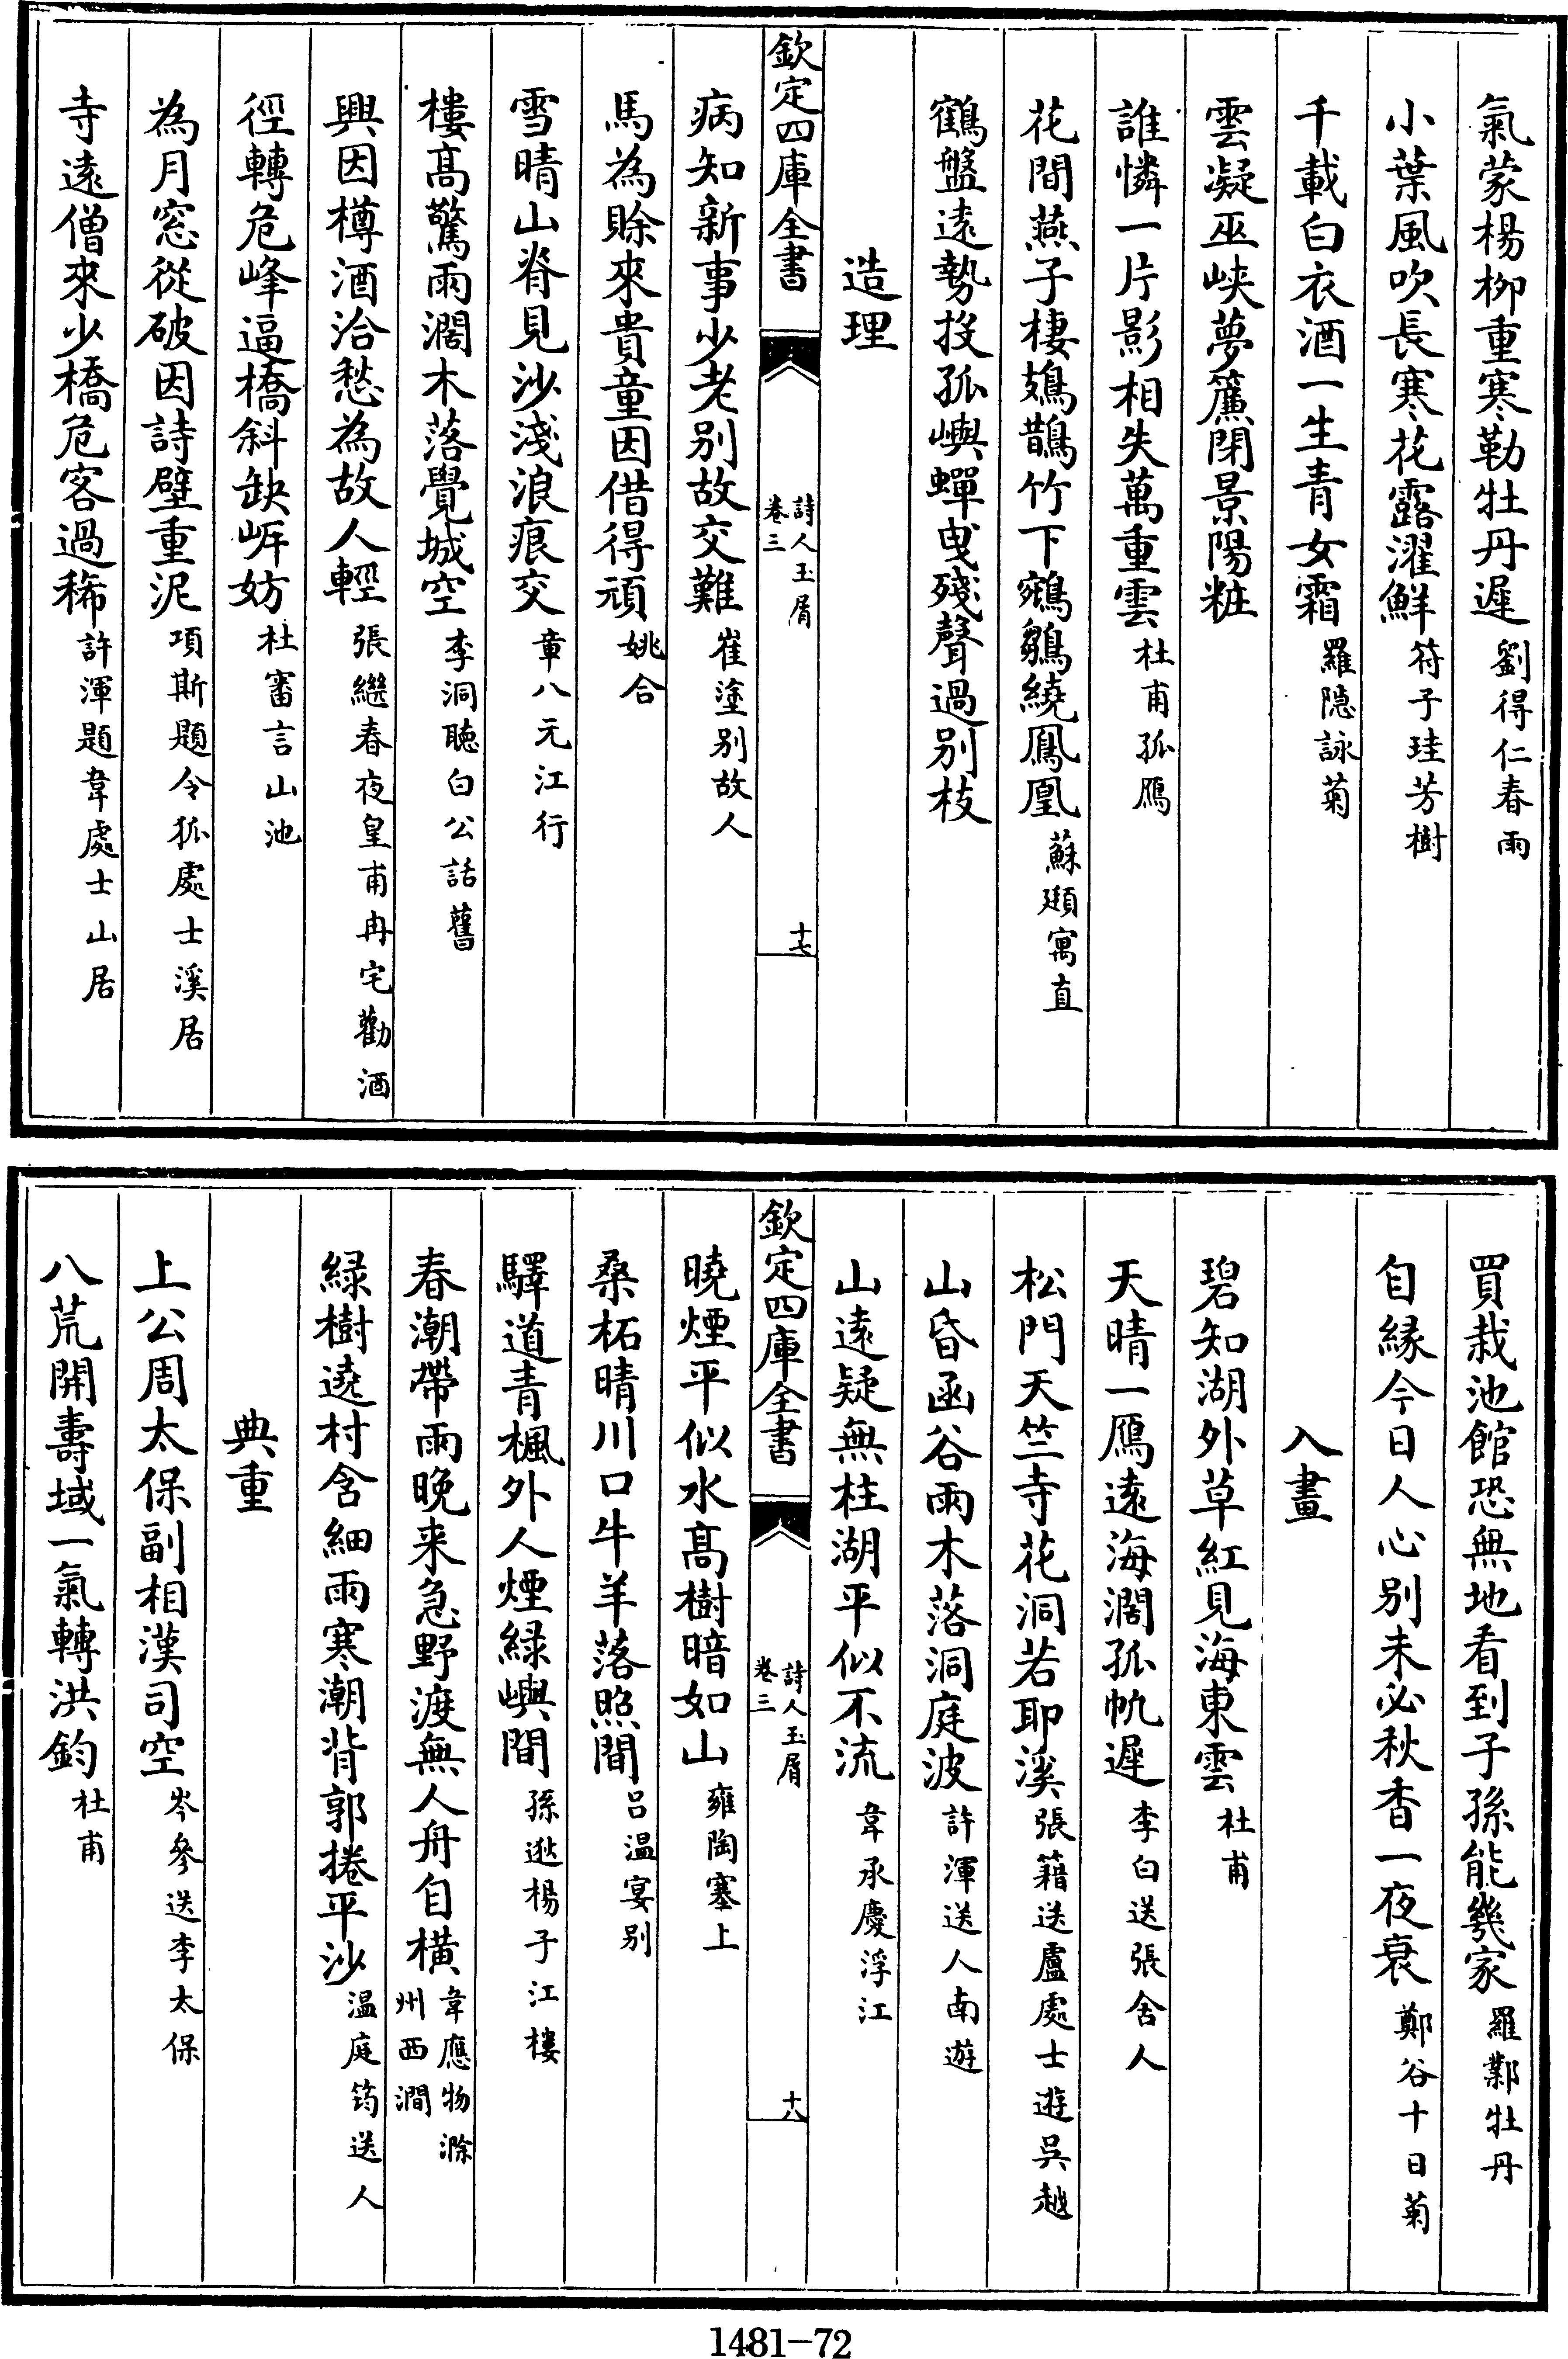 氣蒙楊柳重寒勒牡丹遲劉得仁春雨
小葉風吹長寒花露濯鮮符子珪芳樹
千載白衣酒一生青女霜羅隠詠菊
雲凝巫峽夢簾閉景陽粧
誰憐一片影相失萬重雲杜甫孤鴈
花間燕子棲鳷鵲竹下鵷鶵繞鳳凰蘇頲寓直
鶴盤遠勢投孤嶼蟬曳殘聲過别枝
造理
欽定四庫全書
詩人玉屑
卷三
十七
病知新事少老别故交難崔塗别故人
馬為賒來貴童因借得頑姚合
雪晴山脊見沙淺浪痕交章八元江行
樓髙驚雨濶木落覺城空李洞聴白公話舊
興因樽酒洽愁為故人輕張繼春夜皇甫冉宅勸酒
徑轉危峰逼橋斜缺岸妨杜審言山池
為月窓從破因詩壁重泥項斯題令狐處士溪居
寺遠僧來少橋危客過稀許渾題韋處士山居
買栽池館恐無地看到子孫能幾家羅鄴牡丹
自緣今日人心别未必秋香一夜衰鄭谷十日菊
入畫
碧知湖外草紅見海東雲杜甫
天晴一鴈遠海濶孤帆遲李白送張舍人
松門天竺寺花洞若耶溪張籍送盧處士遊吳越
山昏函谷雨木落洞庭波許渾送人南遊
山遠疑無柱湖平似不流韋承慶浮江
欽定四庫全書
詩人玉屑
卷三
十八
曉煙平似水髙樹暗如山雍陶塞上
桑柘晴川口牛羊落照間吕温宴别
驛道青楓外人煙緑嶼間孫逖楊子江樓
春潮帶雨晚来急野渡無人舟自横韋應物滁
州西澗
緑樹遶村含細雨寒潮背郭捲平沙温庭筠送人
典重
上公周太保副相漢司空岑參送李太保
八荒開壽域一氣轉洪鈞杜甫
1481-72